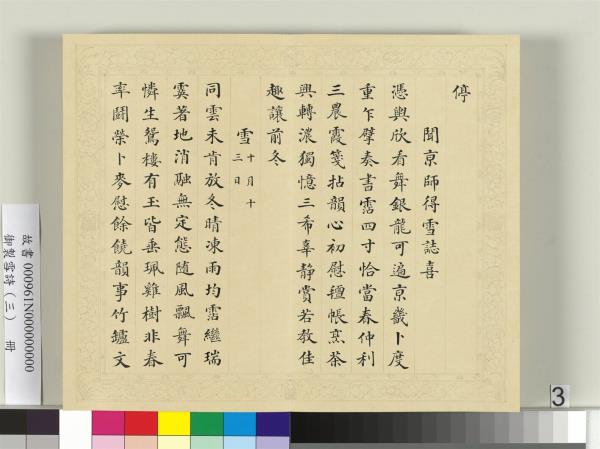 停
聞京師得雪誌喜
憑輿欣看舞銀龍可遍京畿卜度
重乍擘奏書霑四寸恰當春仲利
三農霞箋拈韻心初慰氊帳烹茶
興轉濃獨憶三希辜靜賞若教佳
趣讓前冬
雪十月十三日
同雲未肯放冬晴凍雨均霑繼瑞
霙著地消融無定態隨風飄舞可
憐生鴛樓有玉皆垂珮雞樹非春
率鬪榮卜麥慰餘饒韻事竹爐文
故書 000961N000000000
御製雪詩(三) 冊
3